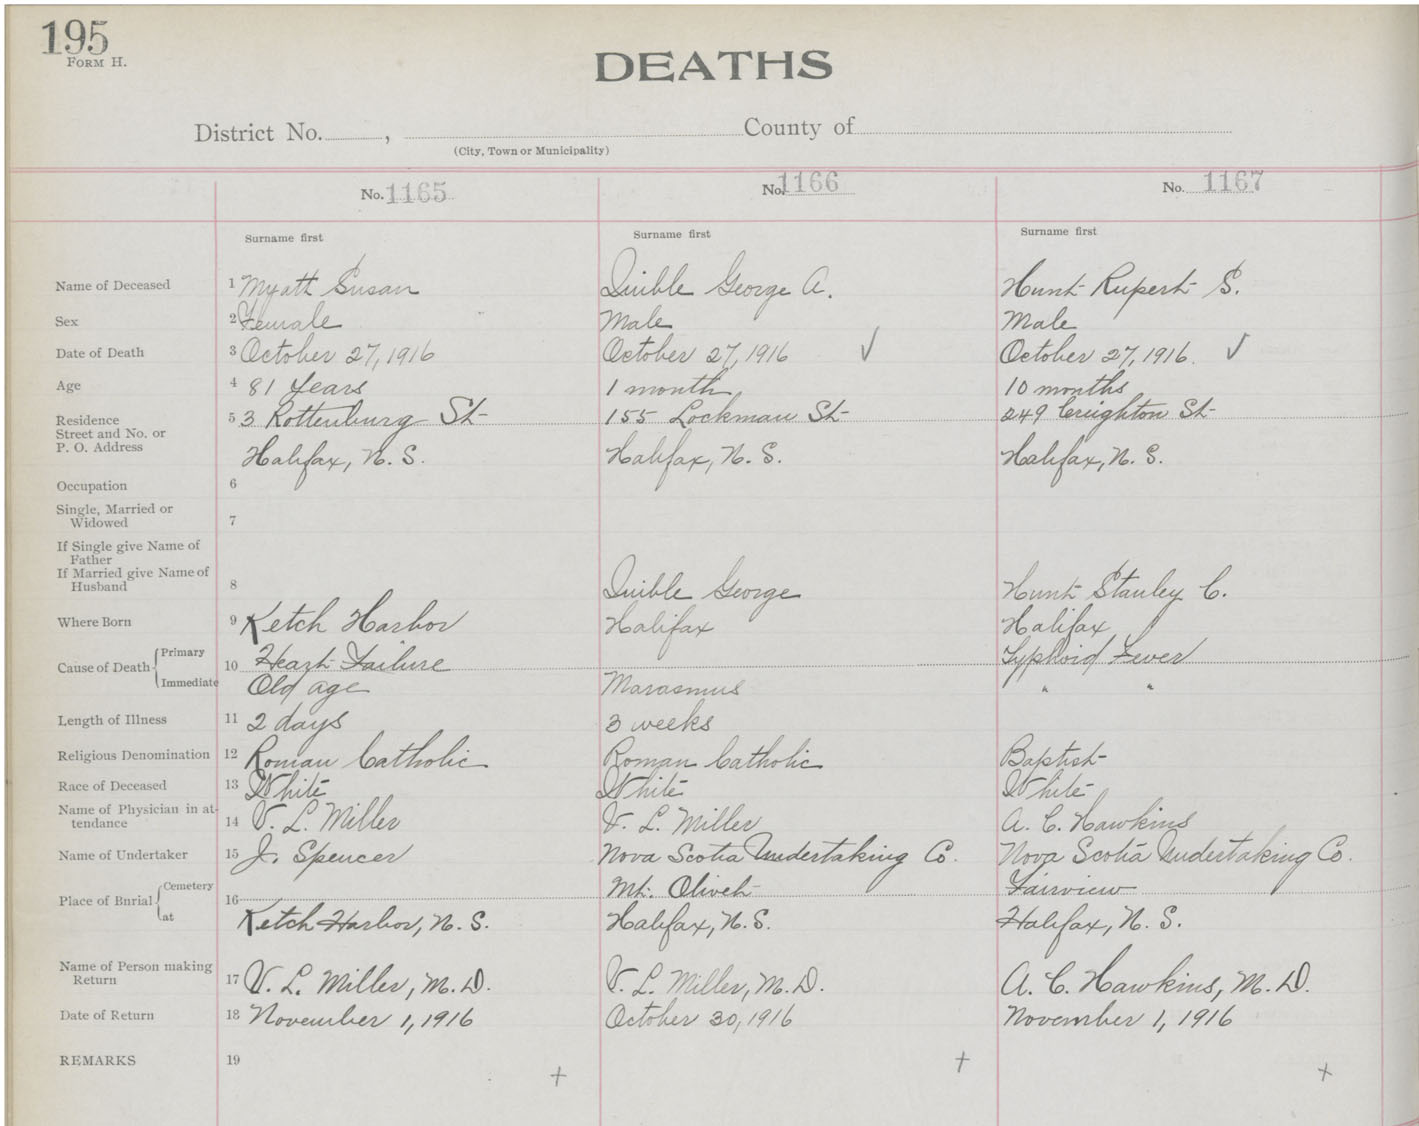 195
FORM H.
DEATHS
District No. , County of
(City, Town or Municipality)
No. 1165 No. 1166 No. 1167
Surname first Surname first Surname first
Name of Deceased 1 Myatt Susan Quible George A. Hunt Rupert S.
Sex 2 Female Male Male
Date of Death 3 October 27, 1916 October 27, 1916 ✓ October 27, 1916. ✓
Age 4 81 Years 1 month 10 months
Residence 5 3 Rottenburg St 155 Lockman St 249 Creighton St
Street and No. or
P. O. Address Halifax, N. S. Halifax, N. S. Halifax, N. S.
Occupation 6
Single, Married or
Widowed 7
If Single give Name of
Father
If Married give Name of
Husband 8 Quible George Hunt Stanley C.
Where Born 9 Ketch Harbor Halifax Halifax
Cause of Death { Primary 10 Heart Failure Typhoid Fever
Immediate Old age Marasmus " "
Length of Illness 11 2 days 3 weeks
Religious Denomination 12 Roman Catholic Roman Catholic Baptist
Race of Deceased 13 White White White
Name of Physician in at-
tendance 14 V. L. Miller V. L. Miller A. C. Hawkins
Name of Undertaker 15 J. Spencer Nova Scotia Undertaking Co. Nova Scotia Undertaking Co.
Place of Burial { Cemetery 16 Mt. Olivet Fairview
at Ketch Harbor, N. S. Halifax, N. S. Halifax, N. S.
Name of Person making
Return 17 V. L. Miller, M. D. V. L. Miller, M. D. A. C. Hawkins, M. D.
Date of Return 18 November 1, 1916 October 30, 1916 November 1, 1916
REMARKS 19
+ + +